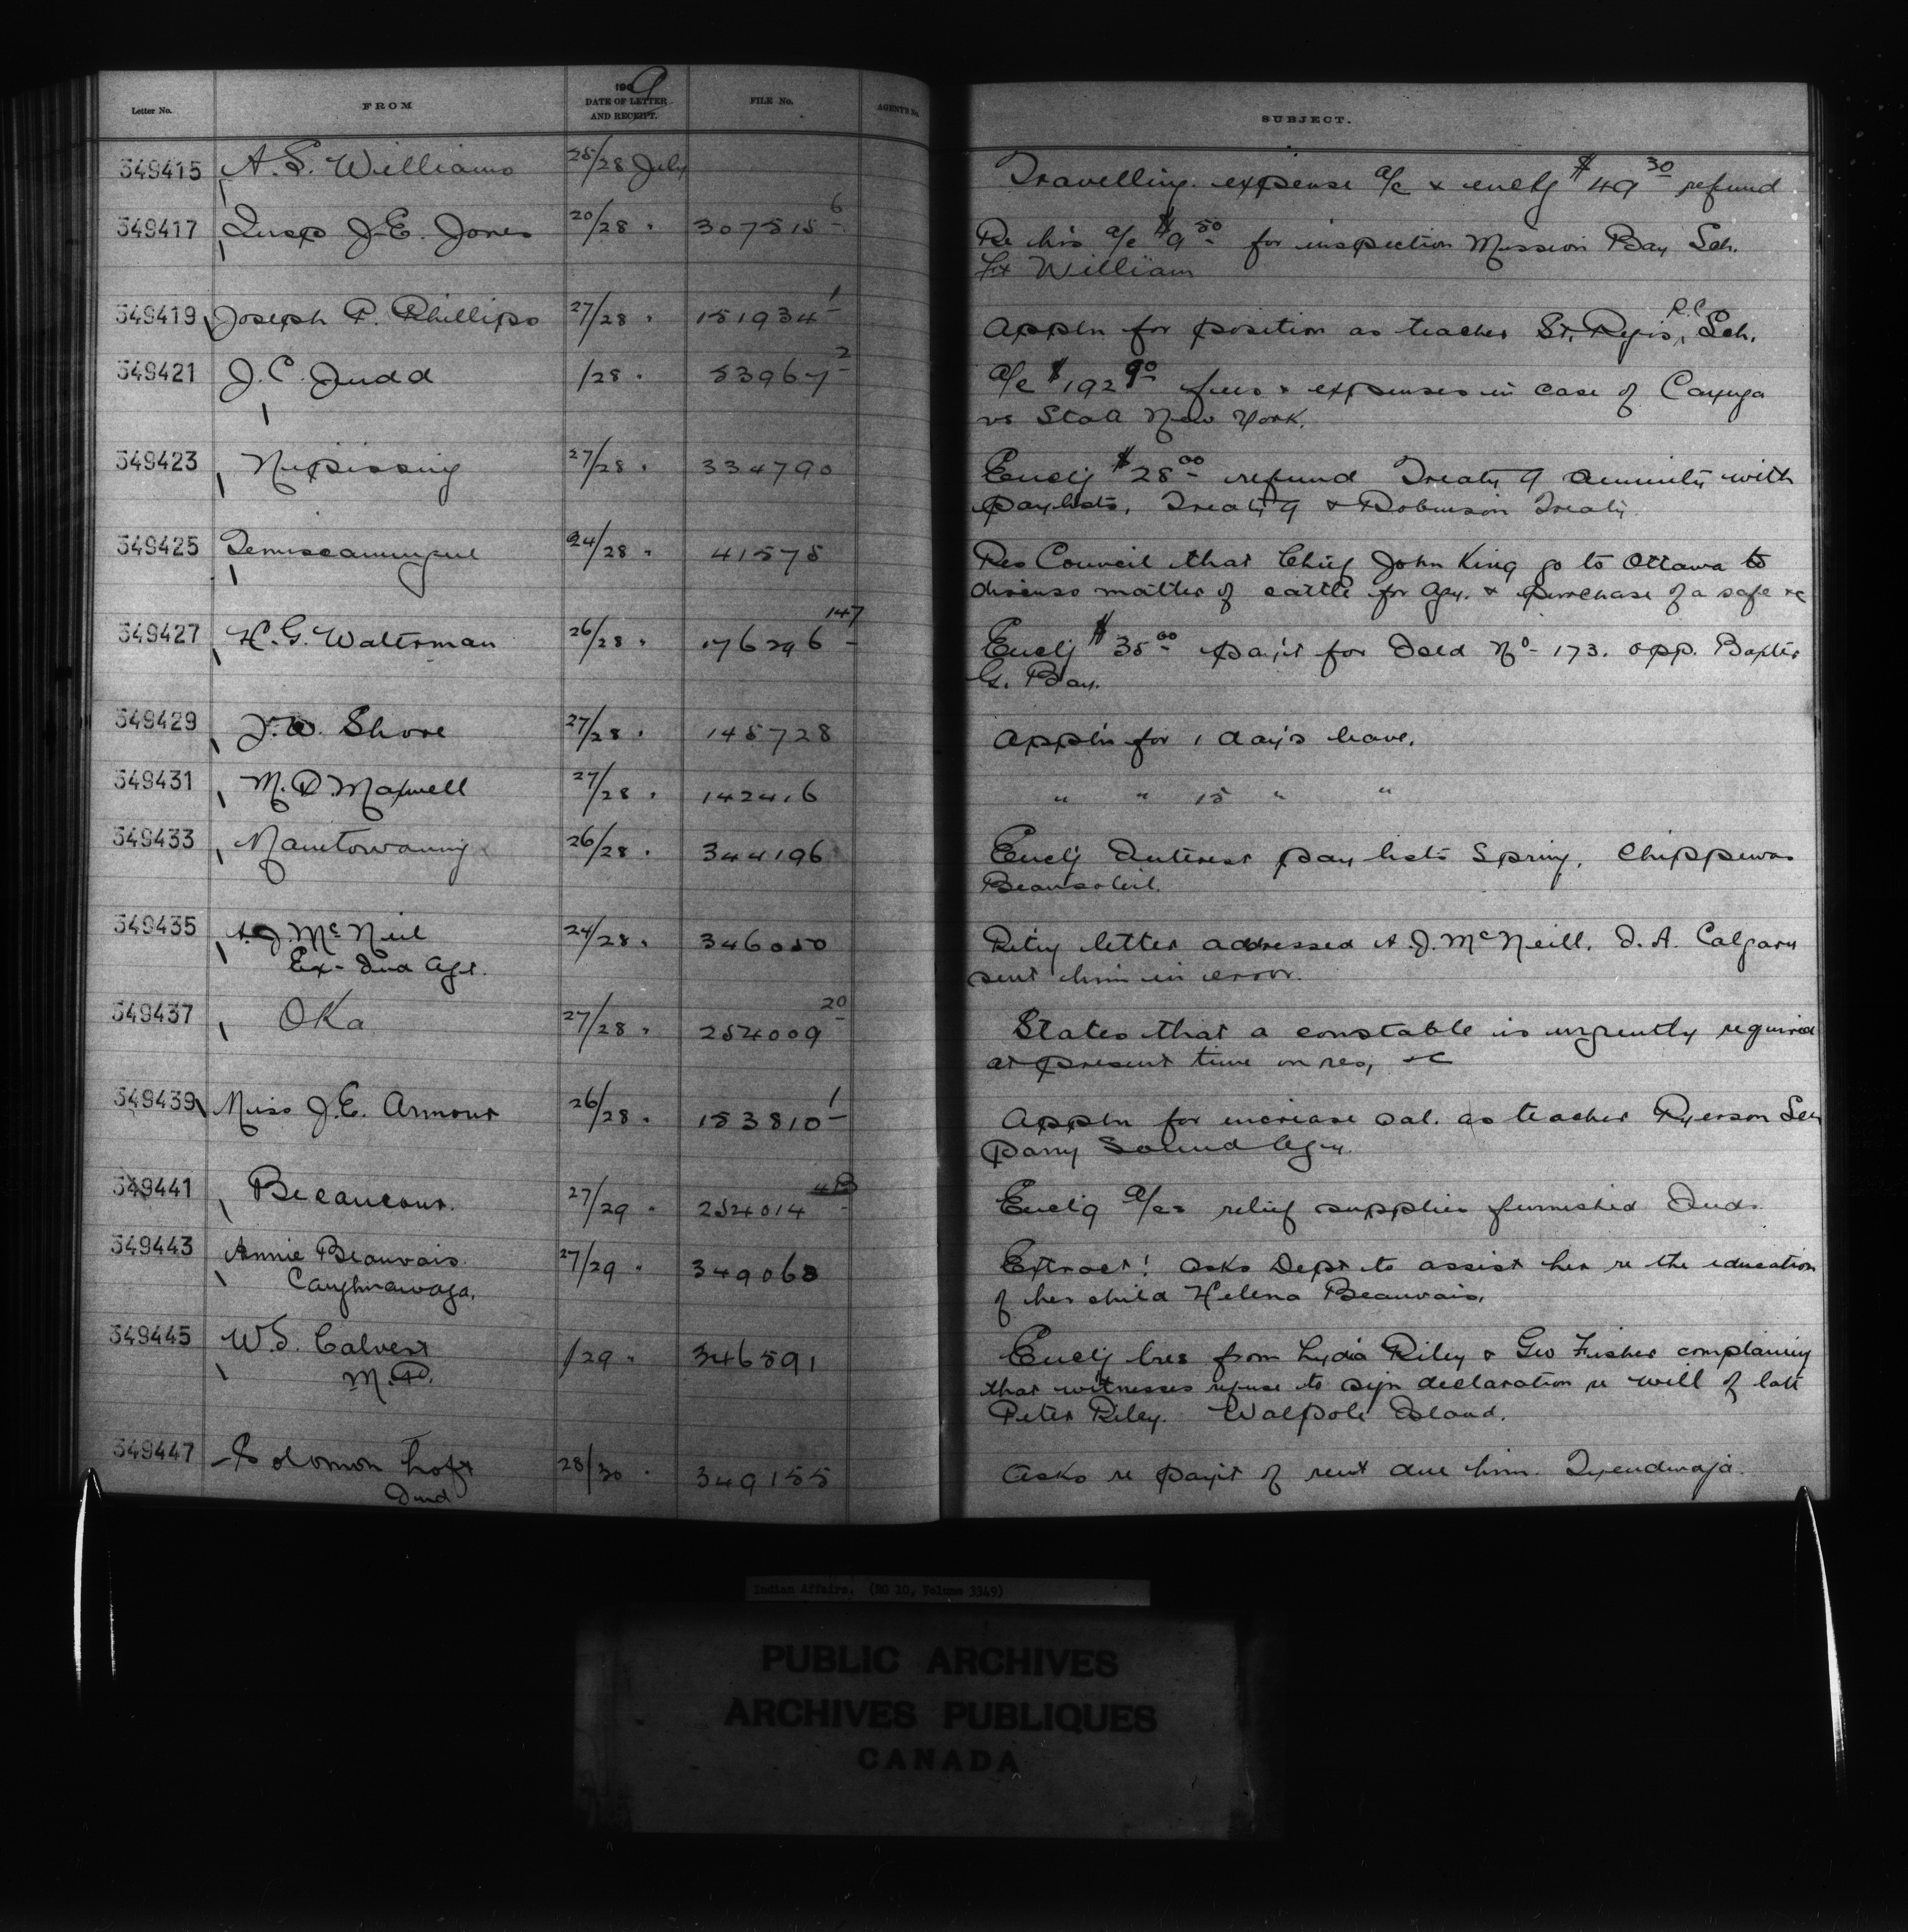 1909
Letter No. FROM DATE OF LETTER AND RECEIPT. FILE No. AGENT'S No. SUBJECT.
349415 A. S. Williams 25/28 July Travelling expense a/c & enclg $49 30 refund
349417 Inspr J. E. Jones 20/28 " 307515 6 Re his a/c $9 50 for inspection Mission Bay Sch.
Ft William
349419 Joseph P. Phillips 27/28 " 151934 1 Appln for position as teacher St. Regis R.C. Sch.
349421 J. C. Judd /28 " 53967 2 a/c $192 90 fees & expenses in case of Cayuga
vs State New York.
349423 Nipissing 27/28 " 334790 Enclg $28 00 refund Treaty 9 annuity with
paylists, Treaty 9 & Robinson Treaty
349425 Temiscamingue 24/28 " 41575 Res Council that Chief John King go to Ottawa to
discuss matter of cattle for Agy. & purchase of a safe &c
349427 H. G. Waterman 26/28 " 176296 147 Enclg $35 00 payt for Deed No 173. opp. Baxter
G. Bay.
349429 J. W. Shore 27/28 " 145728 Appln for 1 day's leave.
349431 M. D. Maxwell 27/28 " 142416 " " 15 " "
349433 Manitowaning 26/28 " 344196 Enclg Interest pay lists Spring, Chippewas
Beausoleil.
349435 A. J. McNeil 24/28 " 346050 Retg letter addressed A. J. McNeill, I. A. Calgary
Ex-Ind Agt. sent him in error.
349437 Oka 27/28 " 254009 20 States that a constable is urgently required
at present time on res, &c
349439 Miss J. E. Armour 26/28 " 153810 1 Appln for increase sal. as teacher Ryerson Sch
Parry Sound Agy.
349441 Becancour. 27/29 " 254014 Enclg a/cs relief supplies furnished Inds.
349443 Annie Beauvais 27/29 " 349068 Extract! Asks Dept to assist her re the education
Caughnawaga. of her child Helena Beauvais.
349445 W. S. Calvert /29 " 346591 Enclg lres from Lydia Riley & Geo Fisher complaining
M.P. that witnesses refuse to sign declaration re will of late
Peter Riley. Walpole Island.
349447 Solomon Loft 28/30 " 349155 Asks re payt of rent due him. Tyendinaga.
Ind
Indian Affairs. (RG 10, Volume 3349)
PUBLIC ARCHIVES
ARCHIVES PUBLIQUES
CANADA